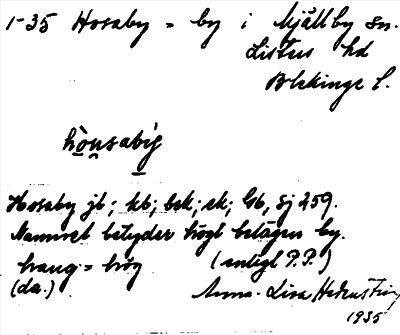 1-35 Hosaby = by i Mjällby sn.
Listers hd
Blekinge l.
hòu̯sabýi
Hosaby jb; kb; bsk; sk; Gb, Sj 259.
Namnet betyder högt belägen by.
haug = hög (enligt P.P.)
(da.) Anna-Lisa
1935